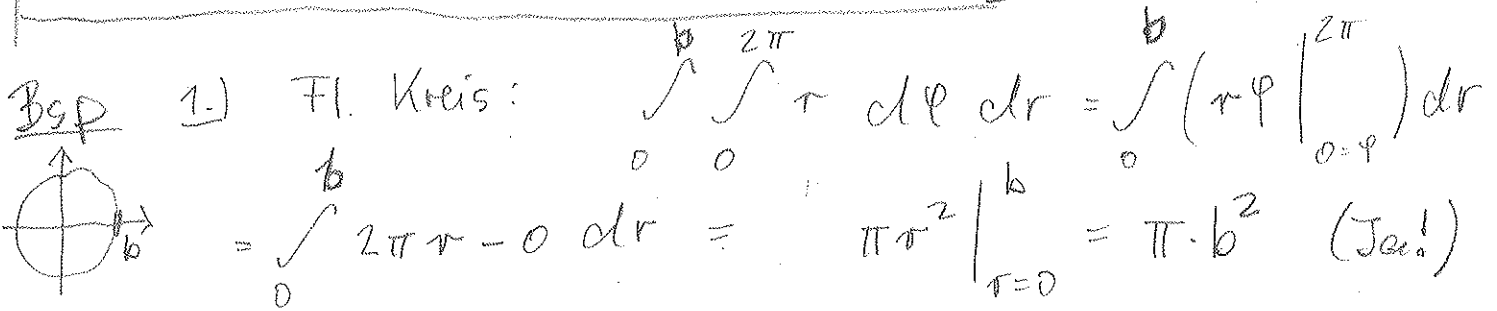 Bsp 1.) Fl. Kreis: ∫₀ᵇ ∫₀^{2π} r dφ dr = ∫₀ᵇ (rφ |_{0=φ}^{2π}) dr
b
= ∫₀ᵇ 2πr - 0 dr = πr² |_{r=0}^{b} = π·b² (Ja!)